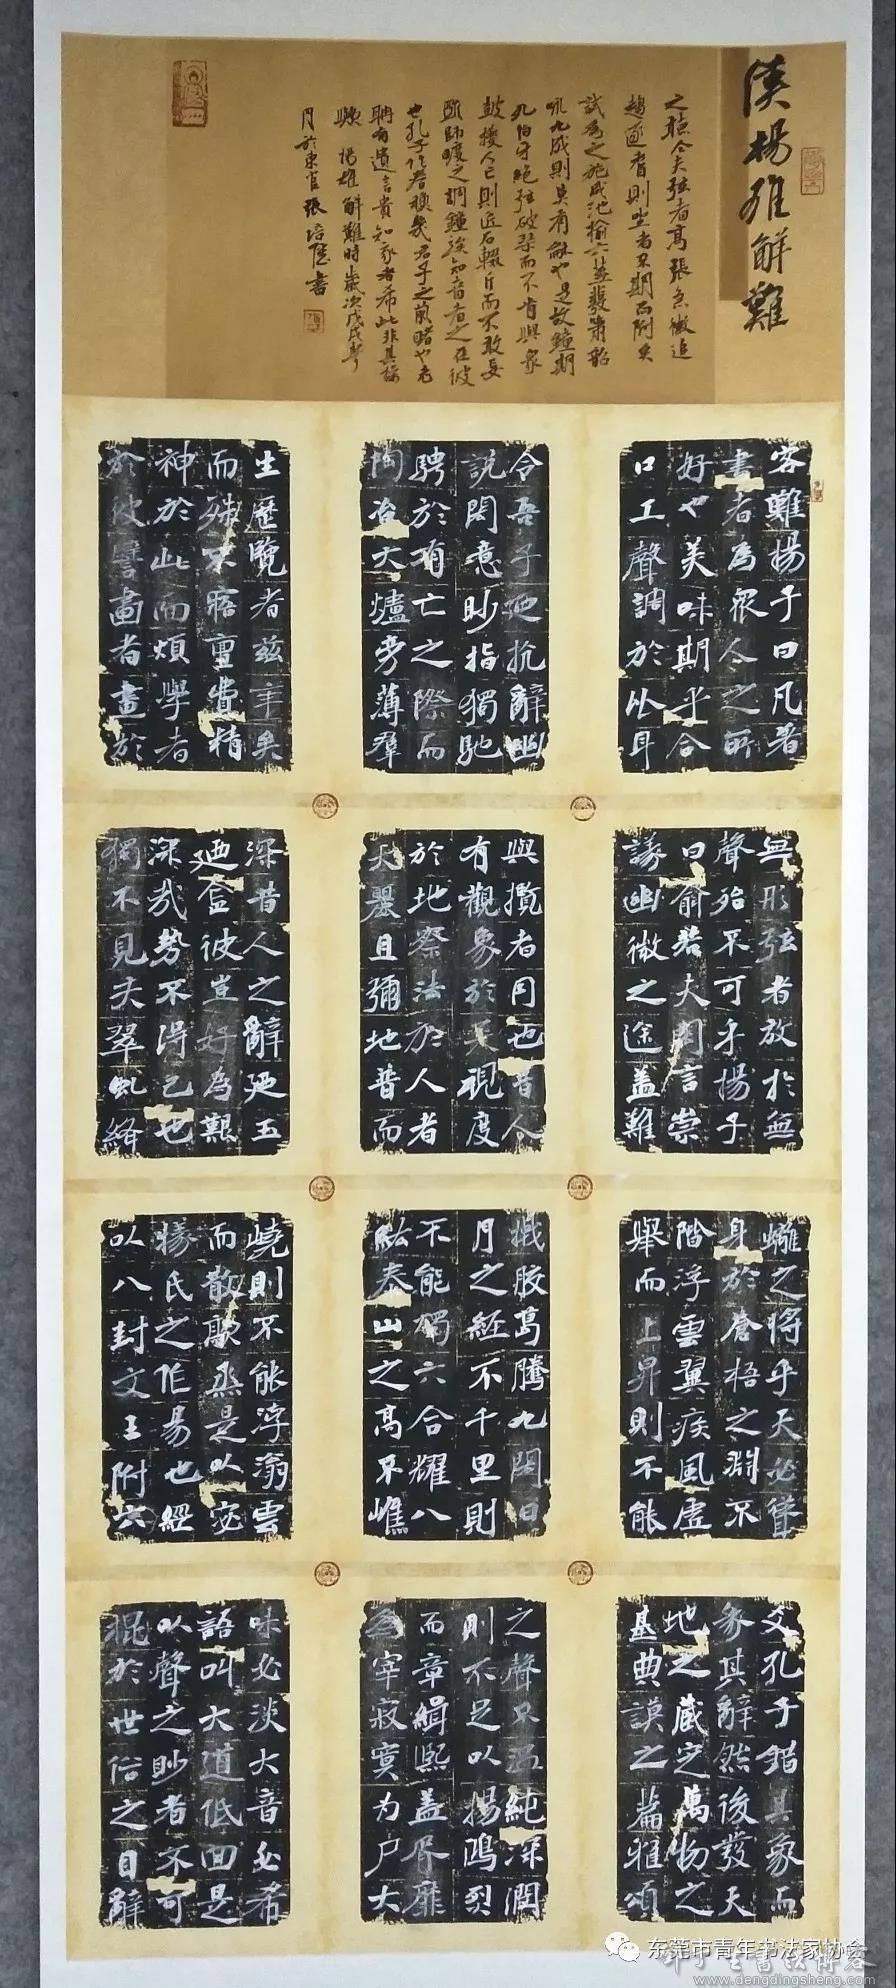 漢楊雄解難
之聽今夫弦者高張急徽追
趨逐耆則坐者不期而附矣
試為之施咸池揄六莖發簫韶
詠九成則莫有龢也是故鐘期
死伯牙絕弦破琴而不肯與眾
鼓獶人亡則匠石輟斤而不敢妄
斲師曠之調鐘俟知音者之在後
也孔子作春秋幾君子之前睹也老
聃有遺言貴知我者希此非其操
歟 楊雄解難時歲次戊戌冬
月於東官張培隆書
客難揚子曰凡著
書者為眾人之所
好也美味期乎合
口工聲調於比耳
今吾子迺抗辭幽
說閎意眇指獨馳
騁於有亡之際而
陶冶大爐旁薄群
生歷覽者茲年矣
而殊不寤亶費精
神於此而煩學者
於彼譬畫者畫於
無形弦者放於無
聲殆不可乎揚子
曰俞若夫閎言崇
議幽微之途蓋難
與攬者同也昔人
有觀象於天視度
於地察法於人者
天麗且彌地普而
深昔人之辭迺玉
迺金彼豈好為艱
深哉勢不得已也
獨不見夫翠虯絳
螭之將乎天必聳
身於倉梧之淵不
階浮雲翼疾風虛
舉而上昇則不能
撠膠葛騰九閎日
月之經不千里則
不能燭六合耀八
紘泰山之高不嶕
嶢則不能浮滃雲
而散歊烝是以宓
犧氏之作易也經
以八卦文王附六
爻孔子錯其象而
彖其辭然後發天
地之藏定萬物之
基典謨之篇雅頌
之聲不溫純深潤
則不足以揚鴻烈
而章緝熙蓋胥靡
為宰寂寞为尸大
味必淡大音必希
語叫大道低回是
以聲之眇者不可
棍於世俗之目辭
东莞市青年书法家协会
邓丁生书法博客
www.dengdingsheng.com